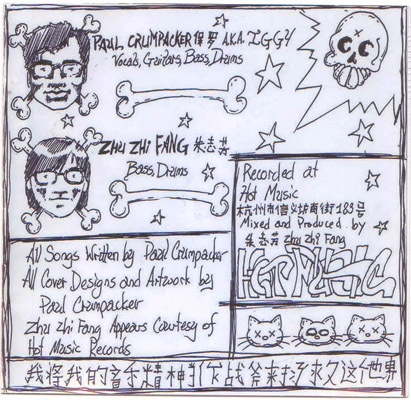 PAUL CRUMPACKER 保罗 A.K.A. IGGY
Vocals, Guitars, Bass, Drums
ZHU ZHI FANG 朱志芳
Bass, Drums
Recorded at
Hot Music
杭州市信义坊商街183号
Mixed and Produced by
Zhu Zhi Fang
HOT MUSIC
All Songs Written by Paul Crumpacker
All Cover Designs and Artwork by
Paul Crumpacker
Zhu Zhi Fang Appears Courtesy of
Hot Music Records
我将我的音乐精神当作战斧来拯救这他界